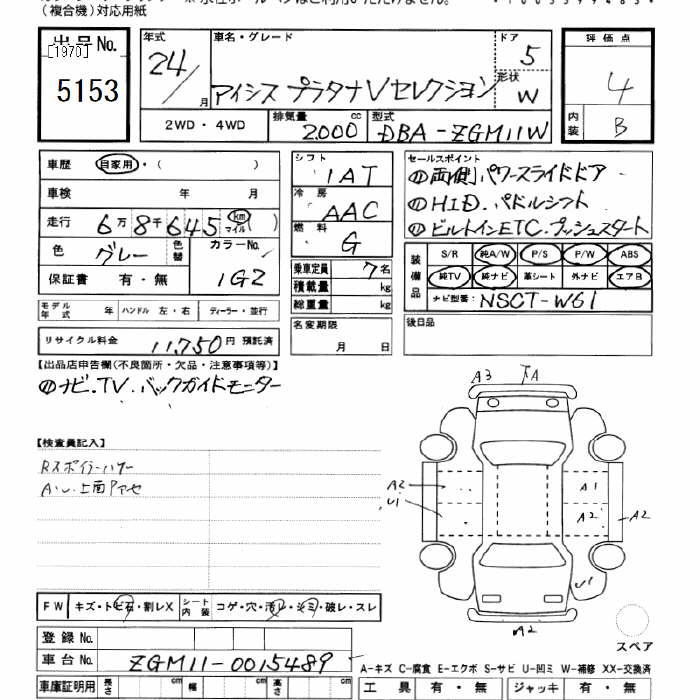 (複合機)対応用紙
出品No.
[1970]
5153
年式
24/
月
車名・グレード
アイシス プラタナVセレクション
ドア
5
形状
W
評価点
4
内装
B
2WD・4WD
排気量
cc
2.000
型式
DBA-ZGM11W
車歴
自家用・( )
車検 年 月
走行 6万8千645 km マイル ( )
色 グレー
色替
カラーNo.
1G2
保証書 有・無
モデル年式 年
ハンドル 左・右
ディーラー・並行
リサイクル料金 11,750円 預託済
シフト
1AT
冷房
AAC
燃料
G
乗車定員 7名
積載量 kg
総重量 kg
名変期限
月 日
セールスポイント
①両側パワースライドドア
①HID.パドルシフト
①ビルトインETC.プッシュスタート
装備品
S/R 純A/W P/S P/W ABS
純TV 純ナビ 革シート 外ナビ エアB
ナビ型番: NSCT-W61
後日品
【出品店申告欄(不良箇所・欠品・注意事項等)】
①ナビ.TV.バックガイドモニター
【検査員記入】
A3
A
A2
U1
A1
A2
A2
U1
A2
スペア
FW
キズ・トビ石・割レX
シート内装
コゲ・穴・汚レ・シミ・破レ・スレ
登録No.
車台No.
ZGM11-0015489
A-キズ C-腐食 E-エクボ S-サビ U-凹ミ W-補修 XX-交換済
車庫証明用
長さ cm
幅 cm
高さ cm
工具 有・無
ジャッキ 有・無